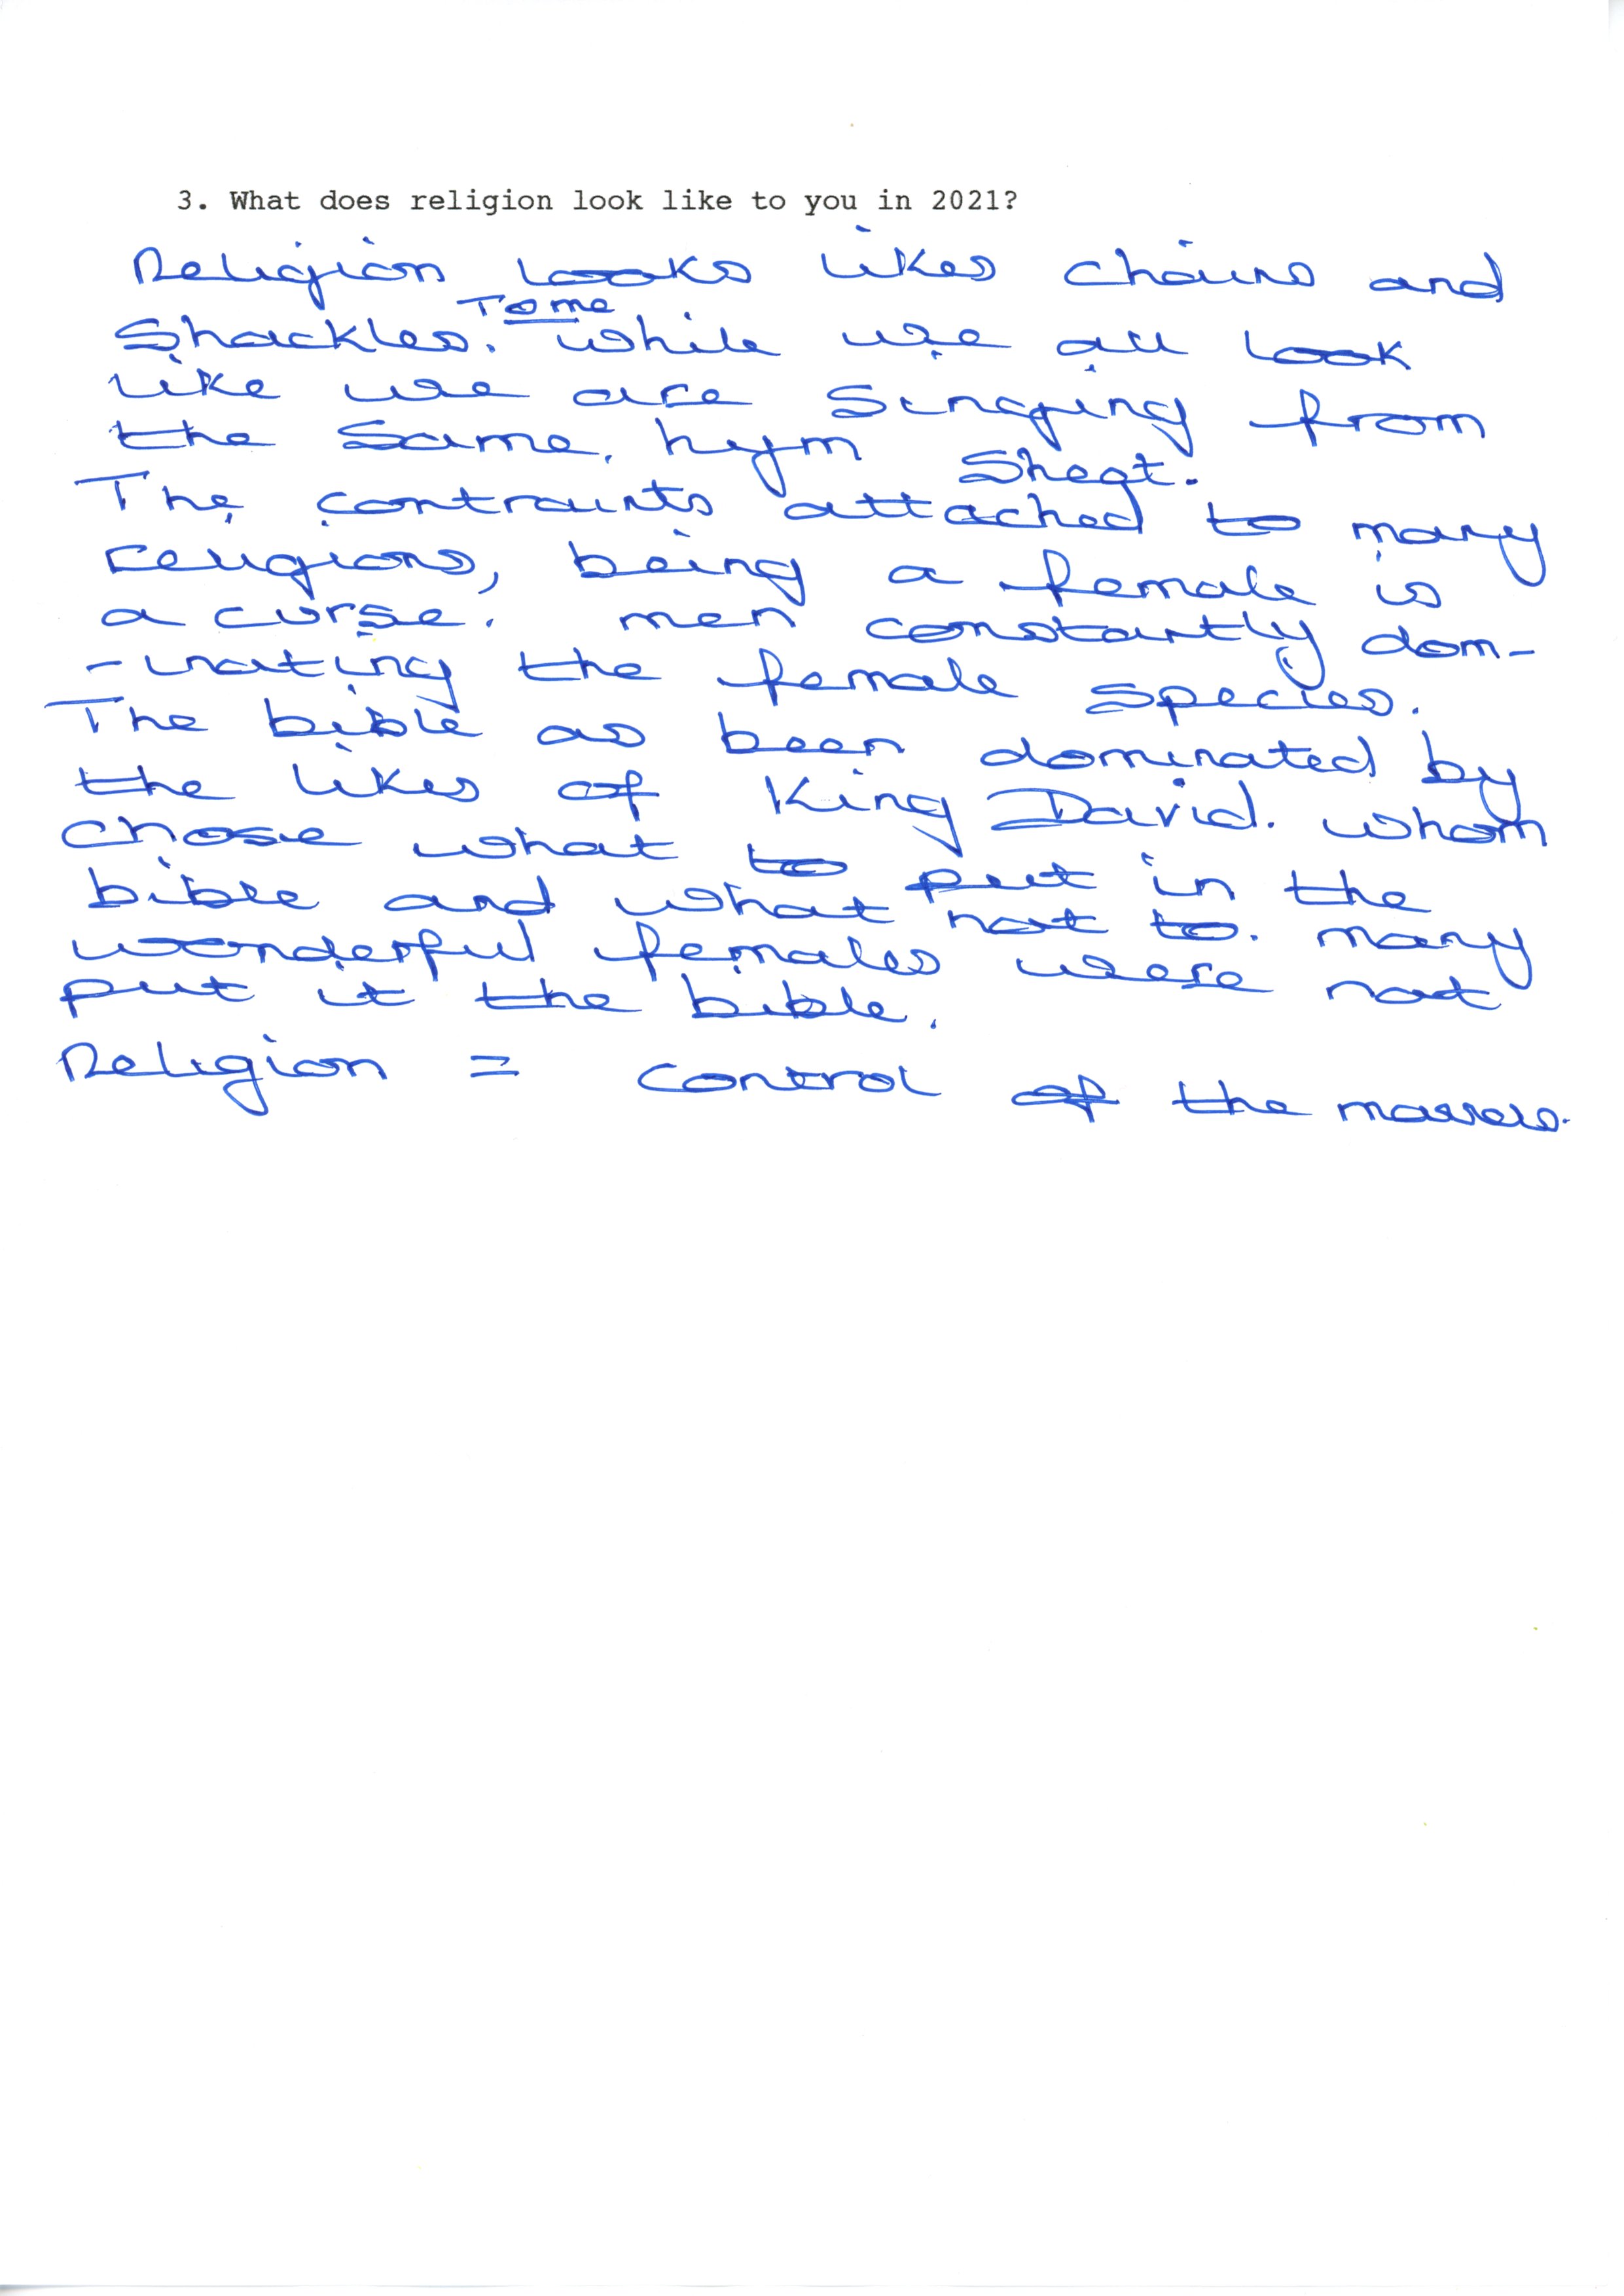 3. What does religion look like to you in 2021?
Religion looks likes chains and
To me
Shackles. While we all look
like we are singing from
the same hym sheet.
The contraints attached to many
religions, being a female is
a curse. men constantly dom-
-inating the female species.
The bible as been dominated by
the likes of King David. whom
chose what to put in the
bible and what not to. many
wonderful females were not
put it the bible.
Religion = control of the masses.